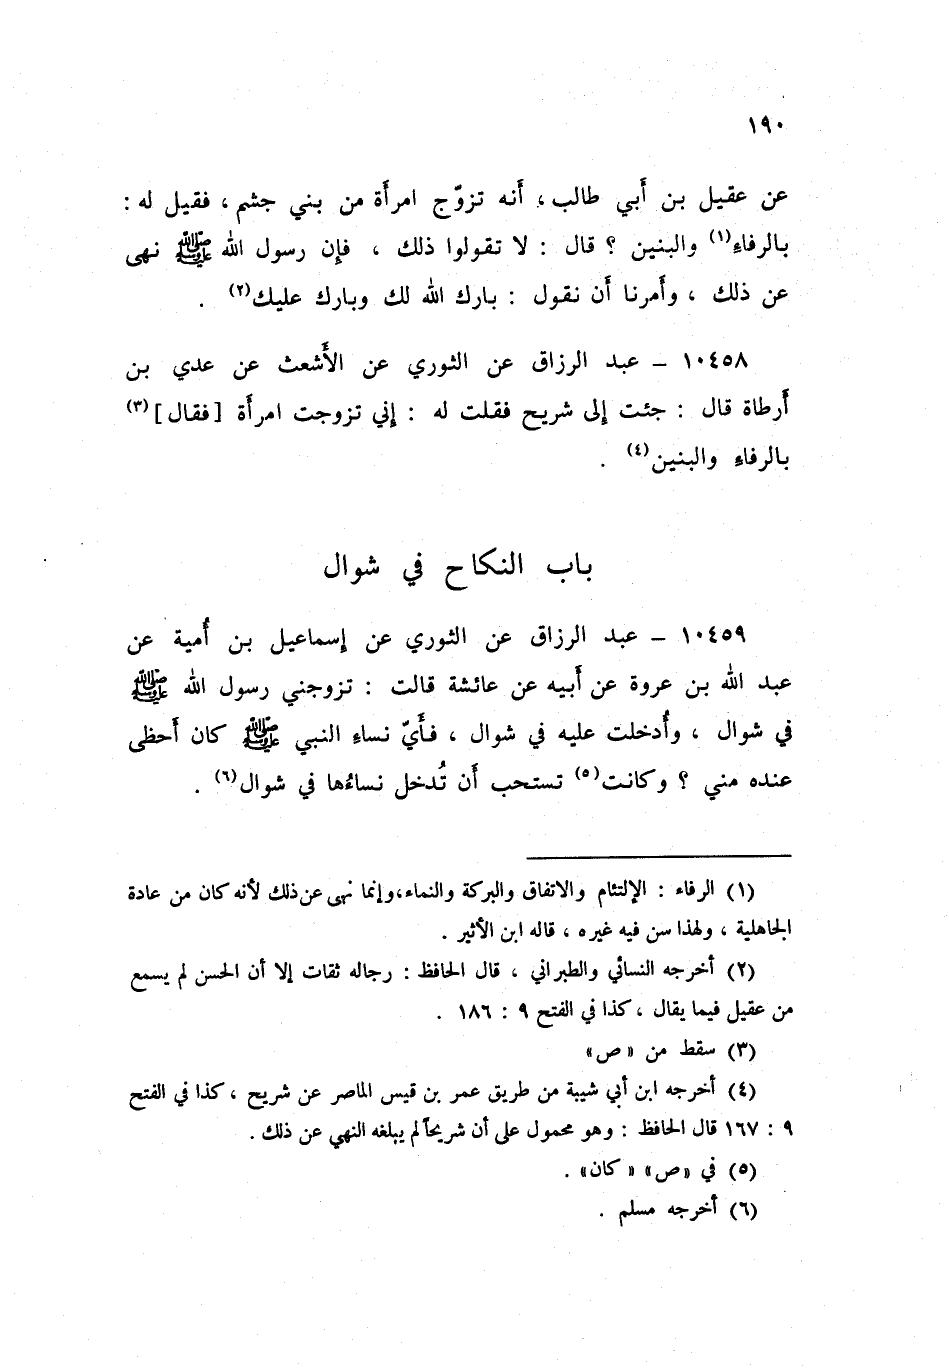 ١٩٠
عن عقيل بن أَبي طالب ، أَنه تزوّج امرأَة من بني جشم ، فقيل له :
بالرفاءِ(١) والبنين ؟ قال : لا تقولوا ذلك ، فإِن رسول الله ﷺ نهى
عن ذلك ، وأَمرنا أَن نقول : بارك الله لك وبارك عليك(٢) .
١٠٤٥٨ – عبد الرزاق عن الثوري عن الأَشعث عن عدي بن
أَرطاة قال : جئت إلى شريح فقلت له : إِني تزوجت امرأَة [فقال](٣)
بالرفاءِ والبنين(٤) .
باب النكاح في شوال
١٠٤٥٩ – عبد الرزاق عن الثوري عن إسماعيل بن أُمية عن
عبد الله بن عروة عن أَبيه عن عائشة قالت : تزوجني رسول الله ﷺ
في شوال ، وأُدخلت عليه في شوال ، فأَيّ نساءِ النبي ﷺ كان أَحظى
عنده مني ؟ وكانت(٥) تستحب أَن تُدخل نساءُها في شوال(٦) .
(١) الرفاء : الإلتئام والاتفاق والبركة والنماء،وإنما نهى عن ذلك لأنه كان من عادة
الجاهلية ، ولهذا سن فيه غيره ، قاله ابن الأثير .
(٢) أخرجه النسائي والطبراني ، قال الحافظ : رجاله ثقات إلا أن الحسن لم يسمع
من عقيل فيما يقال ، كذا في الفتح ٩ : ١٨٦ .
(٣) سقط من « ص»
(٤) أخرجه ابن أبي شيبة من طريق عمر بن قيس الماصر عن شريح ، كذا في الفتح
٩ : ١٦٧ قال الحافظ : وهو محمول على أن شريحاً لم يبلغه النهي عن ذلك .
(٥) في «ص» « كان» .
(٦) أخرجه مسلم .